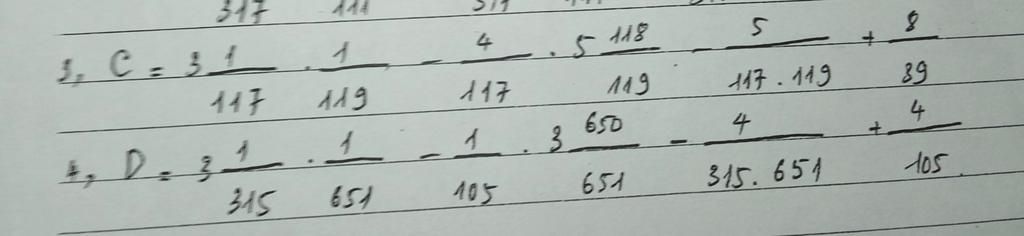 317 111
3, C = 3 1/117 . 1/119 - 4/117 . 5 118/119 - 5/117.119 + 8/39
4, D = 3 1/315 . 1/651 - 1/105 . 3 650/651 - 4/315.651 + 4/105